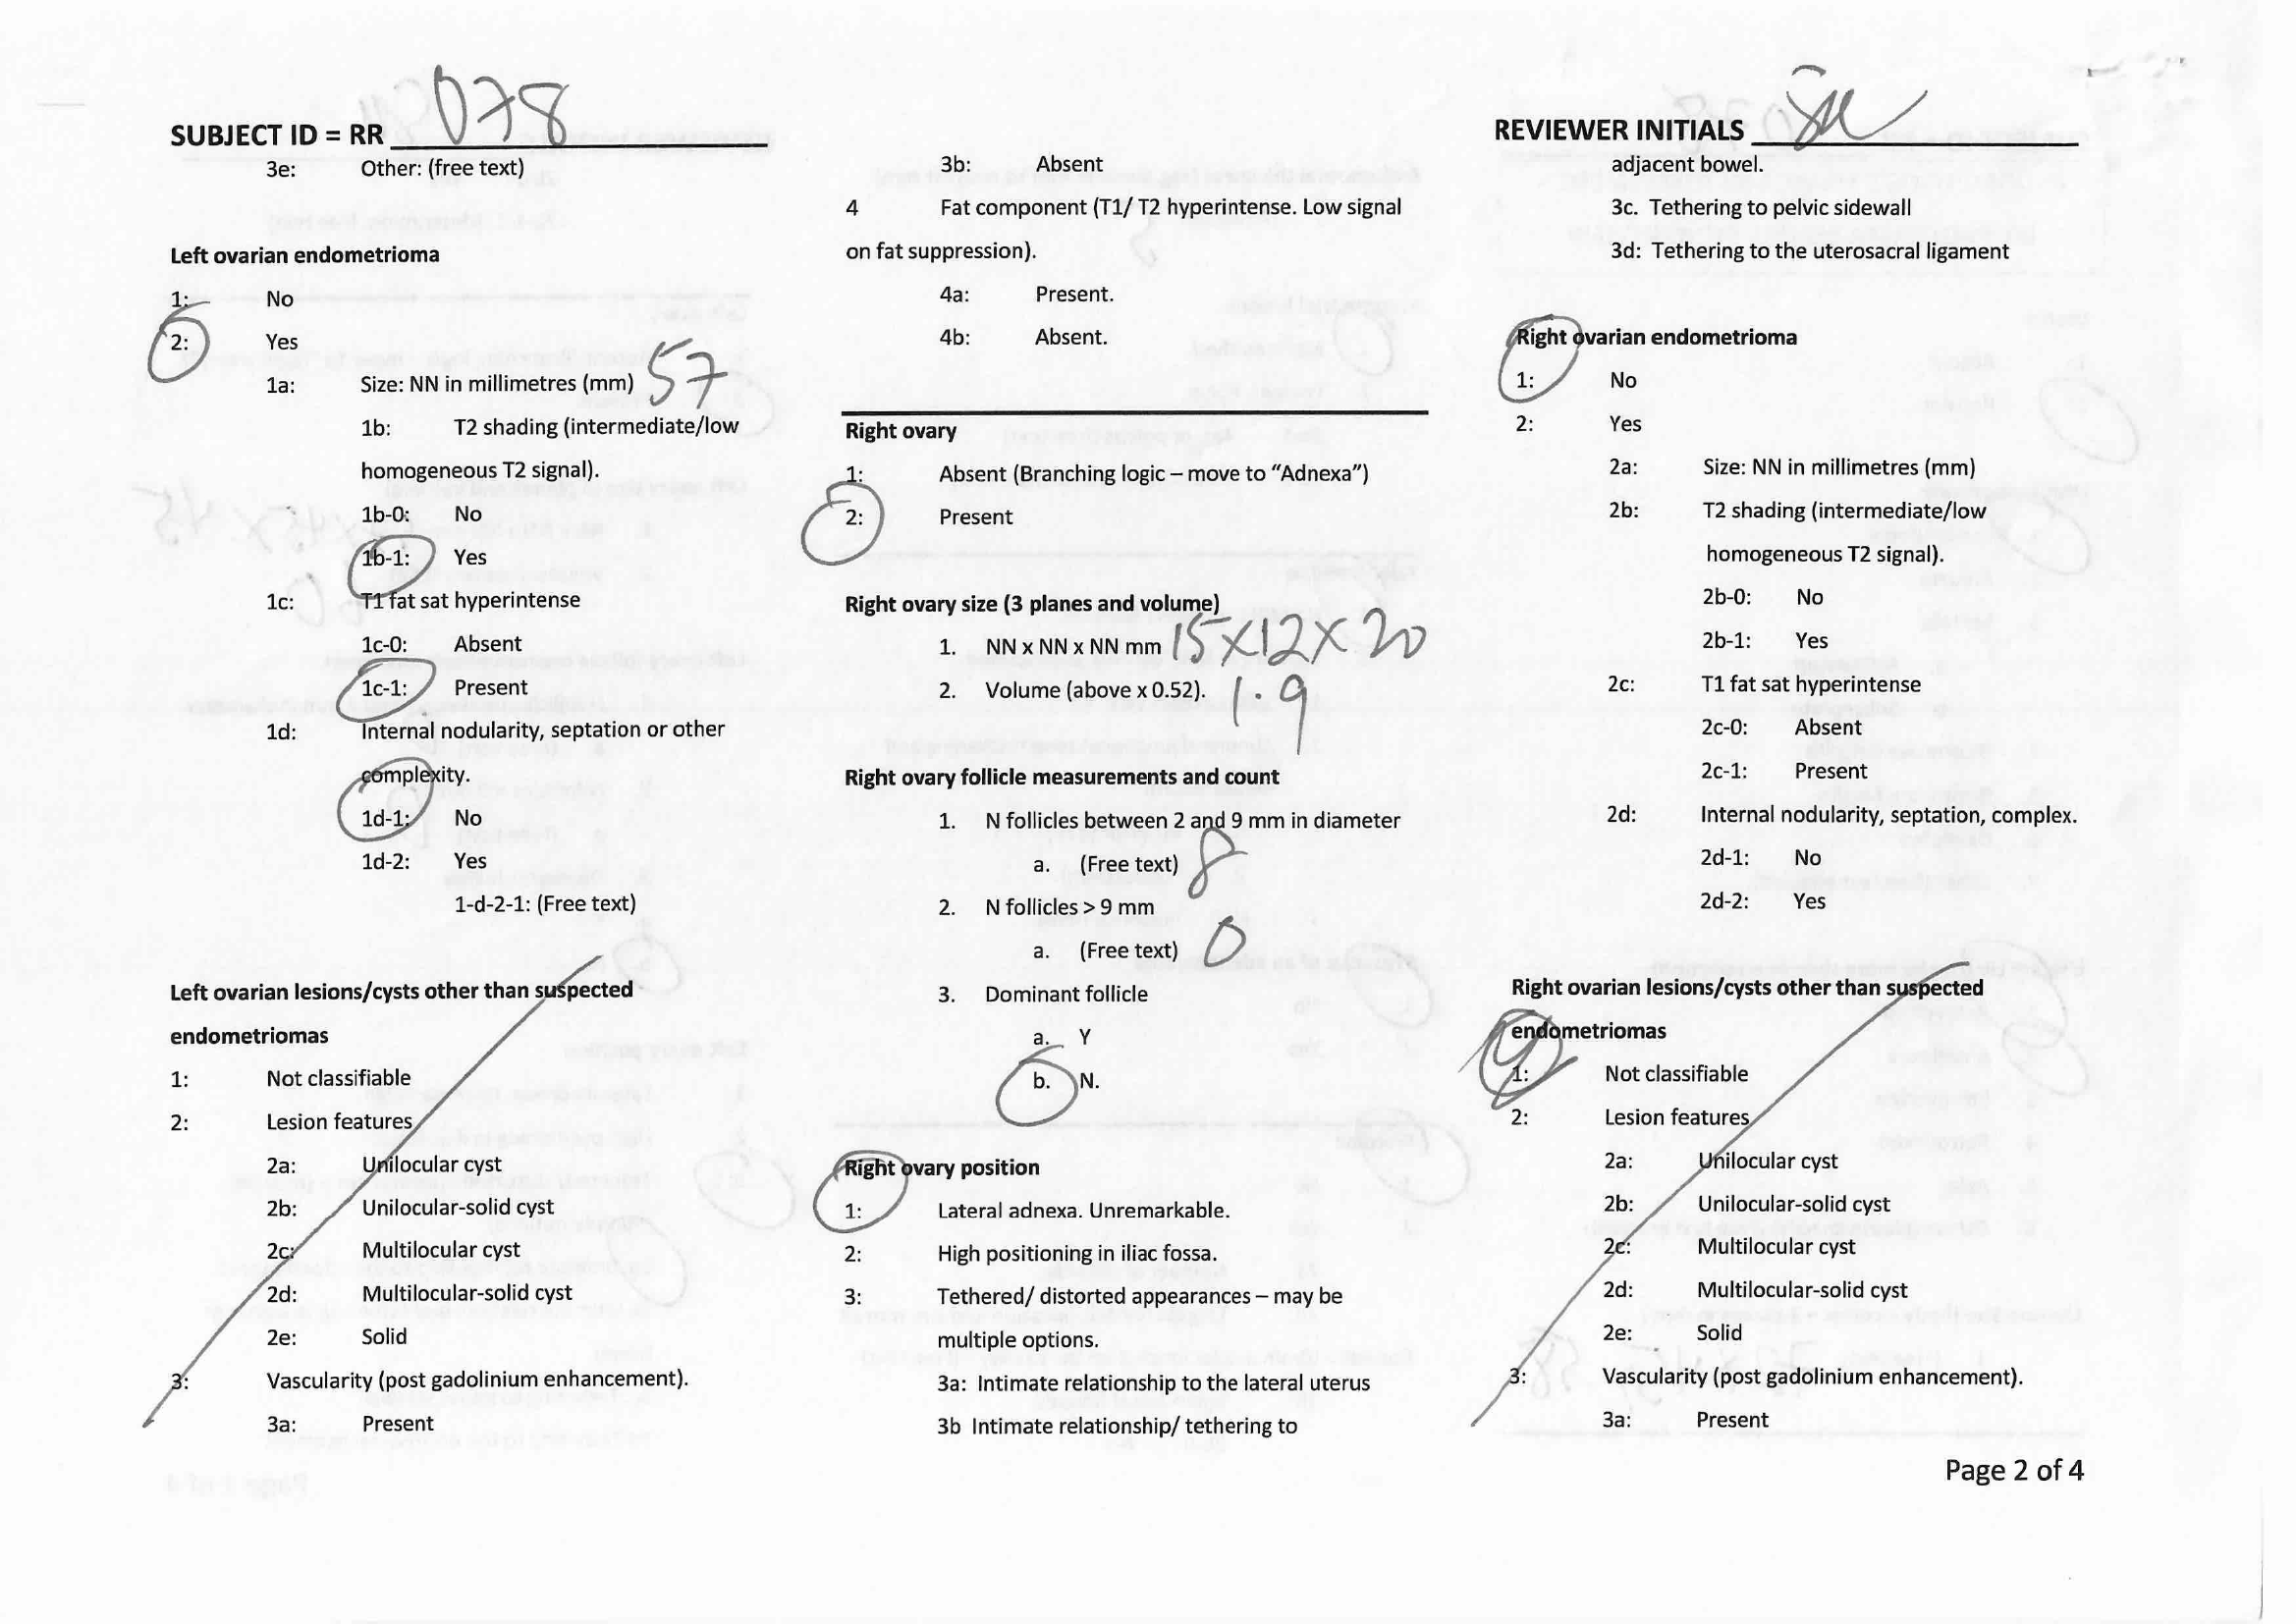 SUBJECT ID = RR 078
3e: Other: (free text)
Left ovarian endometrioma
1: No
2: Yes
1a: Size: NN in millimetres (mm) 57
1b: T2 shading (intermediate/low
homogeneous T2 signal).
1b-0: No
1b-1: Yes
1c: T1 fat sat hyperintense
1c-0: Absent
1c-1: Present
1d: Internal nodularity, septation or other
complexity.
1d-1: No
1d-2: Yes
1-d-2-1: (Free text)
Left ovarian lesions/cysts other than suspected
endometriomas
1: Not classifiable
2: Lesion features
2a: Unilocular cyst
2b: Unilocular-solid cyst
2c: Multilocular cyst
2d: Multilocular-solid cyst
2e: Solid
3: Vascularity (post gadolinium enhancement).
3a: Present
3b: Absent
4 Fat component (T1/ T2 hyperintense. Low signal
on fat suppression).
4a: Present.
4b: Absent.
Right ovary
1: Absent (Branching logic – move to “Adnexa”)
2: Present
Right ovary size (3 planes and volume)
1. NN x NN x NN mm 15x12x20
2. Volume (above x 0.52). 1.9
Right ovary follicle measurements and count
1. N follicles between 2 and 9 mm in diameter
a. (Free text) 8
2. N follicles > 9 mm
a. (Free text) 0
3. Dominant follicle
a. Y
b. N.
Right ovary position
1: Lateral adnexa. Unremarkable.
2: High positioning in iliac fossa.
3: Tethered/ distorted appearances – may be
multiple options.
3a: Intimate relationship to the lateral uterus
3b Intimate relationship/ tethering to
REVIEWER INITIALS
adjacent bowel.
3c. Tethering to pelvic sidewall
3d: Tethering to the uterosacral ligament
Right ovarian endometrioma
1: No
2: Yes
2a: Size: NN in millimetres (mm)
2b: T2 shading (intermediate/low
homogeneous T2 signal).
2b-0: No
2b-1: Yes
2c: T1 fat sat hyperintense
2c-0: Absent
2c-1: Present
2d: Internal nodularity, septation, complex.
2d-1: No
2d-2: Yes
Right ovarian lesions/cysts other than suspected
endometriomas
1: Not classifiable
2: Lesion features
2a: Unilocular cyst
2b: Unilocular-solid cyst
2c: Multilocular cyst
2d: Multilocular-solid cyst
2e: Solid
3: Vascularity (post gadolinium enhancement).
3a: Present
Page 2 of 4